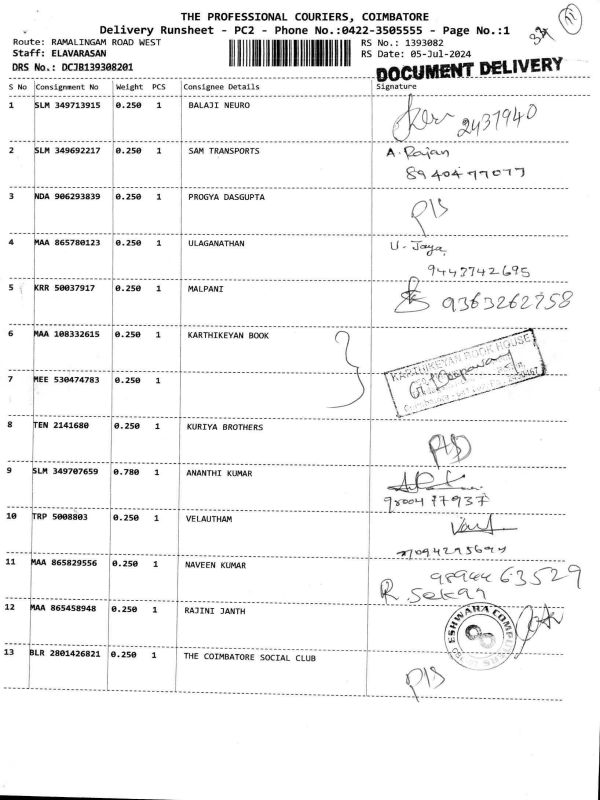 THE PROFESSIONAL COURIERS, COIMBATORE
Delivery Runsheet - PC2 - Phone No.:0422-3505555 - Page No.:1
Route: RAMALINGAM ROAD WEST
Staff: ELAVARASAN
DRS No.: DCJB139308201
RS No.: 1393082
RS Date: 05-Jul-2024
DOCUMENT DELIVERY
S No Consignment No Weight PCS Consignee Details Signature
1 SLM 349713915 0.250 1 BALAJI NEURO
2437940
2 SLM 349692217 0.250 1 SAM TRANSPORTS A. Rajan
8940477077
3 NDA 906293839 0.250 1 PROGYA DASGUPTA
P/S
4 MAA 865780123 0.250 1 ULAGANATHAN U. Jaya
9443742695
5 KRR 50037917 0.250 1 MALPANI
9363262758
6 MAA 108332615 0.250 1 KARTHIKEYAN BOOK
KARTHIKEYAN BOOK HOUSE
7 MEE 530474783 0.250 1
8 TEN 2141680 0.250 1 KURIYA BROTHERS
9 SLM 349707659 0.780 1 ANANTHI KUMAR
9800477937
10 TRP 5008803 0.250 1 VELAUTHAM
11 MAA 865829556 0.250 1 NAVEEN KUMAR
9894463529
R. Sekar
12 MAA 865458948 0.250 1 RAJINI JANTH
ESHWARA
13 BLR 2801426821 0.250 1 THE COIMBATORE SOCIAL CLUB
P/S